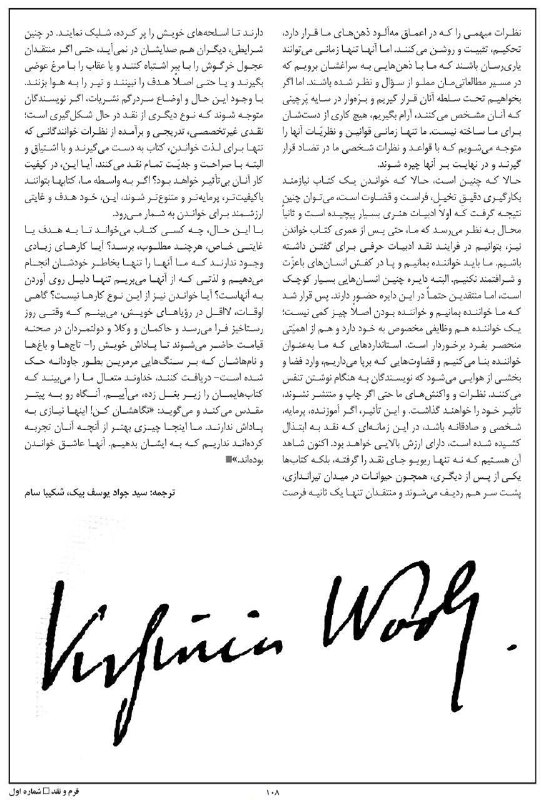 نظرات مبهمی را که در اعماق مه‌آلود ذهن‌های ما قرار دارد،
تحکیم، تثبیت و روشن می‌کنند. اما آنها تنها زمانی می‌توانند
یاری‌رسان باشند که ما با ذهن‌هایی به سراغشان برویم که
در مسیر مطالعاتی‌مان مملو از سؤال و نظر شده باشند. اما اگر
بخواهیم تحت سلطه آنان قرار گیریم و بزه‌وار در سایه پَرچینی
که آنان مشخص می‌کنند، آرام بگیریم، هیچ کاری از دستشان
برای ما ساخته نیست. ما تنها زمانی قوانین و نظریّات آنها را
متوجه می‌شویم که با قواعد و نظرات شخصی ما در تضاد قرار
گیرند و در نهایت بر آنها چیره شوند.
حالا که چنین است، حالا که خواندن یک کتاب نیازمند
بکارگیری دقیق تخیّل، فراست و قضاوت است، می‌توان چنین
نتیجه گرفت که اولا ادبیات هنری بسیار پیچیده است و ثانیاً
محال به نظر می‌رسد که ما، حتی پس از عمری کتاب خواندن
نیز، بتوانیم در فرایند نقد ادبیات حرفی برای گفتن داشته
باشیم. ما باید خواننده بمانیم و پا در کفش انسان‌های باعزّت
و شرافتمند نکنیم. البته دایره چنین انسان‌هایی بسیار کوچک
است، اما منتقدین حتماً در این دایره حضور دارند. پس قرار شد
که ما خواننده بمانیم و خواننده بودن اصلاً چیز کمی نیست؛
یک خواننده هم وظایفی مخصوص به خود دارد و هم از اهمیّتی
منحصر بفرد برخوردار است. استانداردهایی که ما به‌عنوان
خواننده بنا می‌کنیم و قضاوت‌هایی که برپا می‌داریم، وارد فضا و
بخشی از هوایی می‌شود که نویسندگان به هنگام نوشتن تنفس
می‌کنند. نظرات و واکنش‌های ما حتی اگر چاپ و منتشر نشوند،
تأثیر خود را خواهند گذاشت. و این تأثیر، اگر آموزنده، پرمایه،
شخصی و صادقانه باشد، در این زمانه‌ای که نقد به ابتذال
کشیده شده است، دارای ارزش بالایی خواهد بود. اکنون شاهد
آن هستیم که نه تنها ریویو جای نقد را گرفته، بلکه کتاب‌ها
یکی از پس از دیگری، همچون حیوانات در میدان تیراندازی،
پشت سر هم ردیف می‌شوند و منتقدان تنها یک ثانیه فرصت
دارند تا اسلحه‌های خویش را پر کرده، شلیک نمایند. در چنین
شرایطی، دیگران هم صدایشان در نمی‌آید، حتی اگر منتقدان
عجول خرگوش را با ببر اشتباه کنند و یا عقاب را با مرغ عوضی
بگیرند و یا حتی اصلاً هدف را نبینند و تیر را به هوا بزنند.
با وجود این حال و اوضاع سردرگم نشریات، اگر نویسندگان
متوجه شوند که نوع دیگری از نقد در حال شکل‌گیری است؛
نقدی غیرتخصصی، تدریجی و برآمده از نظرات خوانندگانی که
تنها برای لذت خواندن، کتاب به دست می‌گیرند و با اشتیاق و
البته با صراحت و جدیّت تمام نقد می‌کنند، آیا این، در کیفیت
کار آنان بی‌تأثیر خواهد بود؟ اگر به واسطه ما، کتابها بتوانند
باکیفیت‌تر، پرمایه‌تر و متنوع‌تر شوند، این، خود هدف و غایتی
ارزشمند برای خواندن به شمار می‌رود.
با این حال، چه کسی کتاب می‌خواند تا به هدف یا
غایتی خاص، هرچند مطلوب، برسد؟ آیا کارهای زیادی
وجود ندارند که ما آنها را تنها بخاطر خودشان انجام
می‌دهیم و لذتی که از آنها می‌بریم تنها دلیل روی آوردن
به آنهاست؟ آیا خواندن نیز از این نوع کارها نیست؟ گاهی
اوقات، لااقل در رؤیاهای خویش، می‌بینم که وقتی روز
رستاخیز فرا می‌رسد و حاکمان و وکلا و دولتمردان در صحنه
قیامت حاضر می‌شوند تا پاداش خویش را- تاج‌ها و باغ‌ها
و نام‌هاشان که بر سنگ‌هایی مرمرین بطور جاودانه حک
شده است- دریافت کنند، خداوند متعال ما را می‌بیند که
کتاب‌هایمان را زیر بغل زده، می‌آییم. آنگاه رو به پیتر
مقدس می‌کند و می‌گوید: «نگاهشان کن! اینها نیازی به
پاداش ندارند. ما اینجا چیزی بهتر از آنچه آنان تجربه
کرده‌اند نداریم که به ایشان بدهیم. آنها عاشق خواندن
بوده‌اند.»■
ترجمه: سید جواد یوسف بیک، شکیبا سام
Virginia Woolf.
فرم و نقد □ شماره اول
۱۰۸